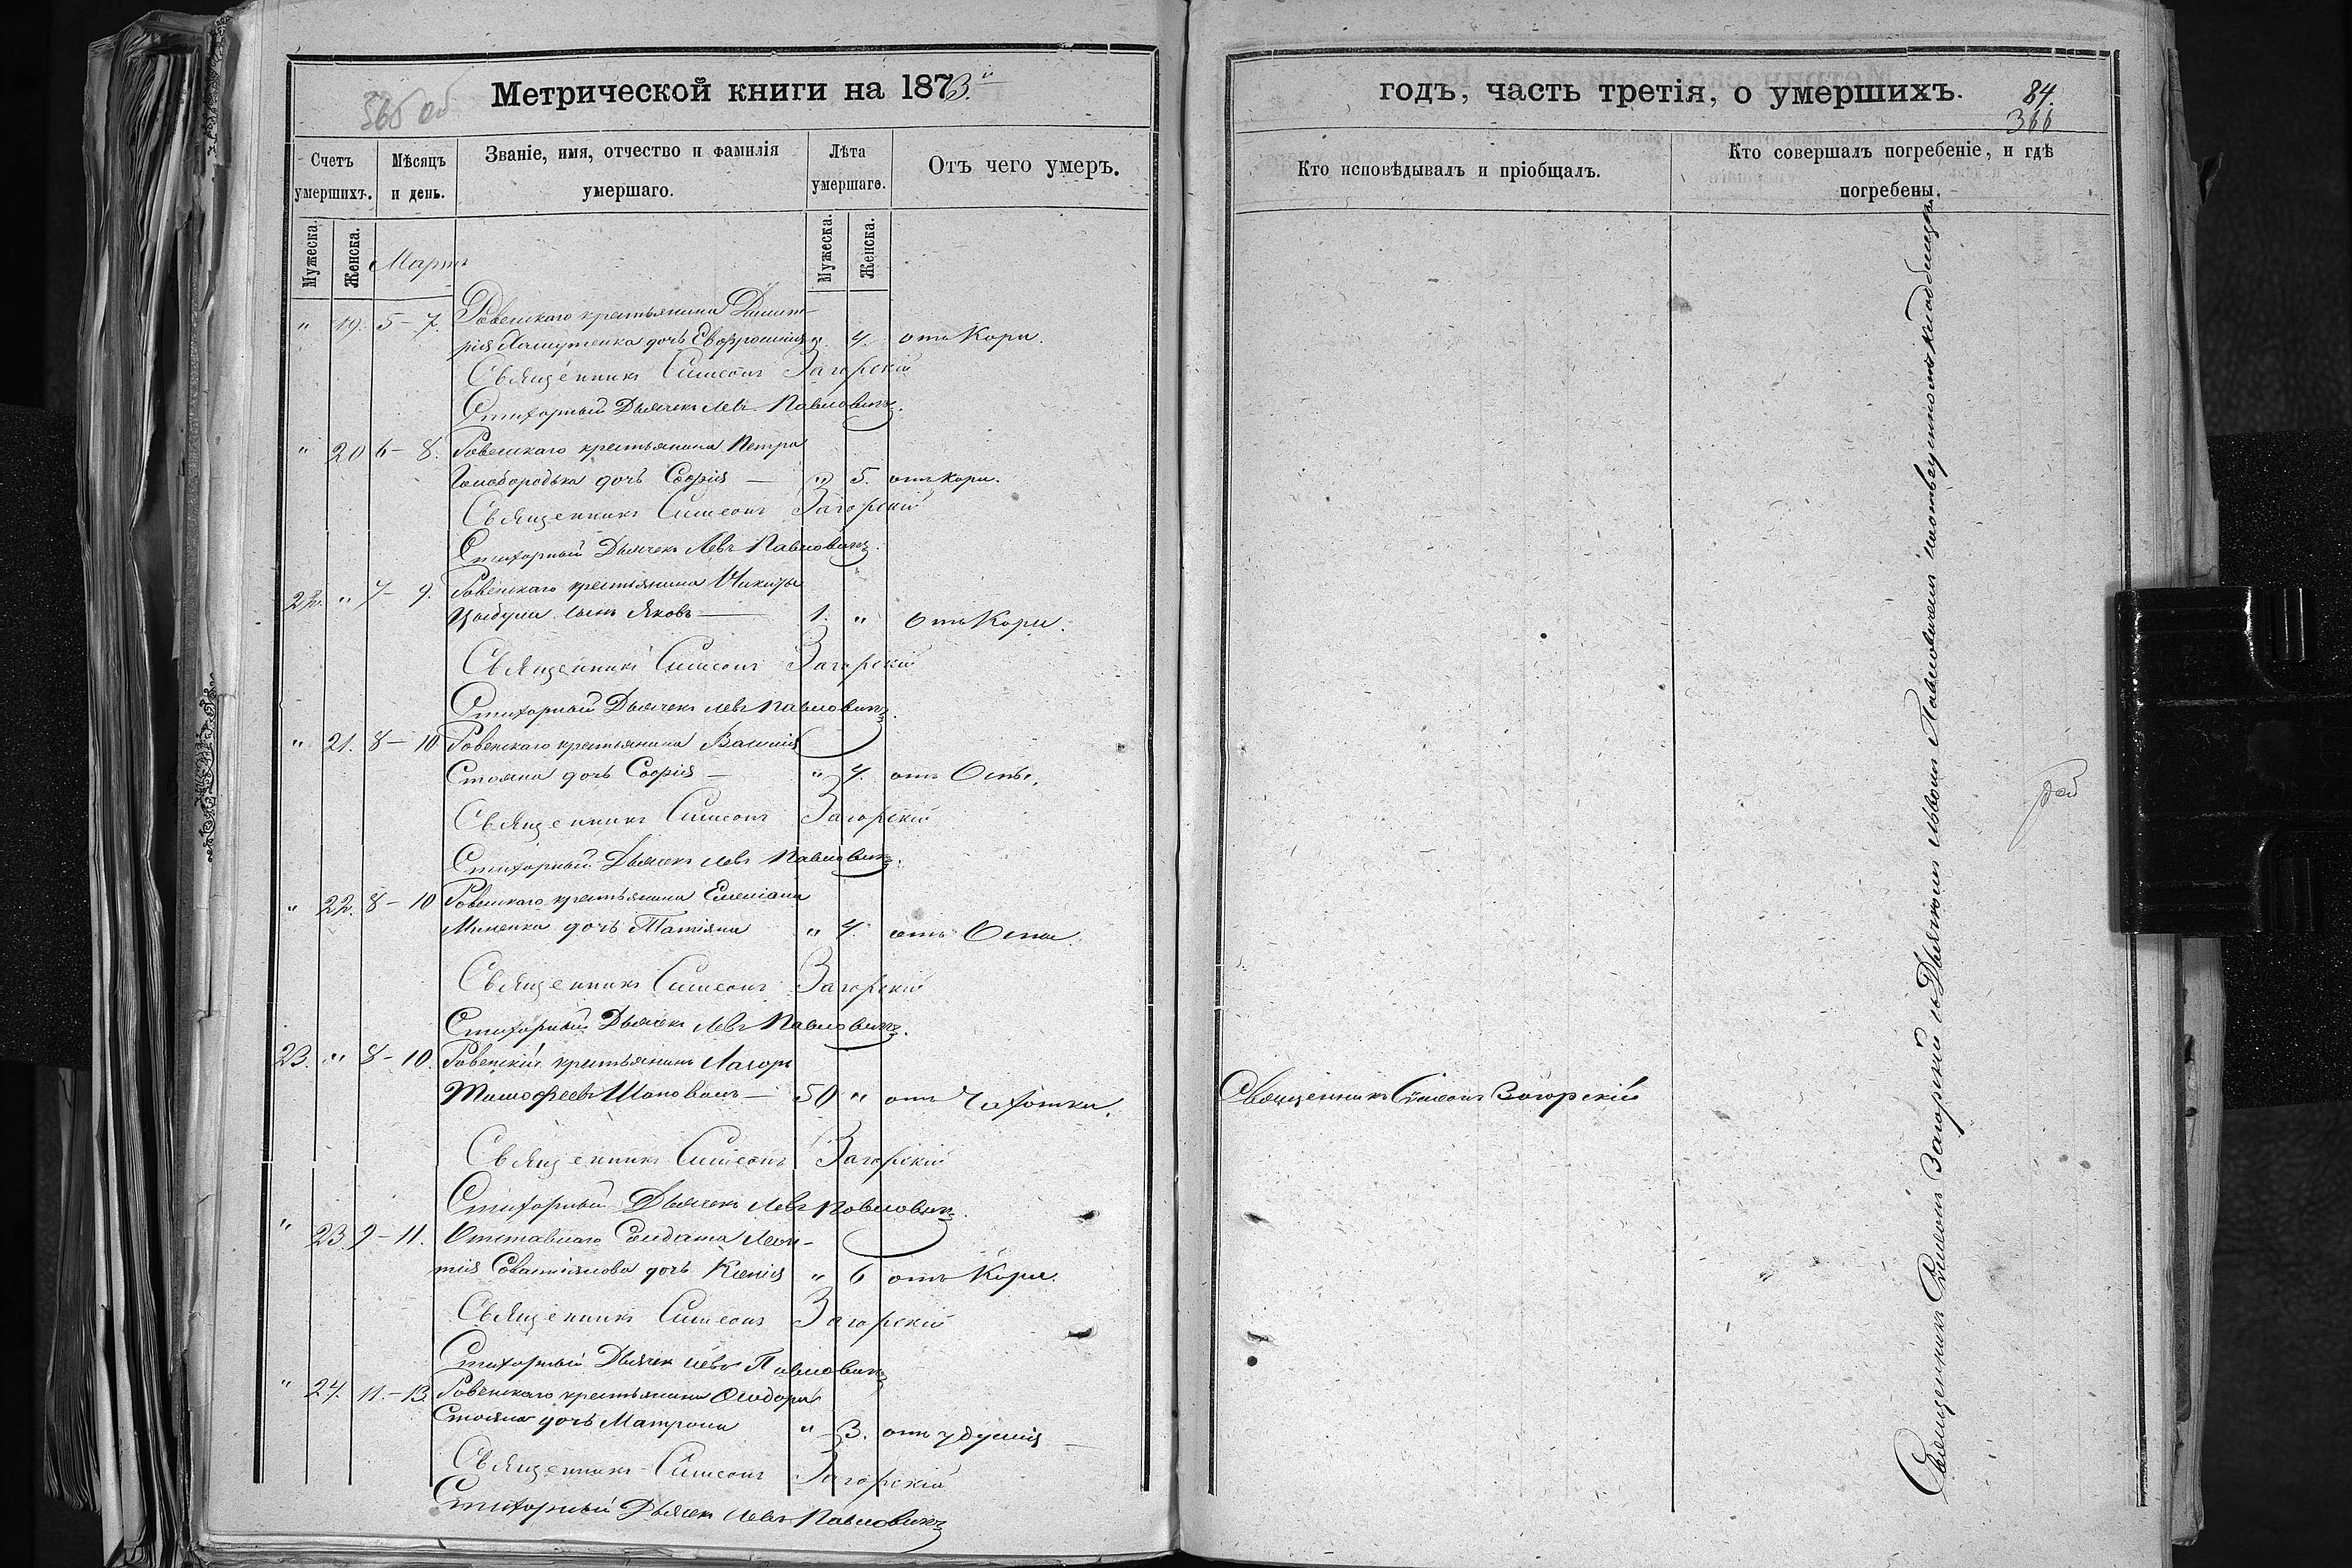 Метрической книги на 1873й
366 об
Счетъ умершихъ.
Мѣсяцъ и день.
Званіе, имя, отчество и фамилія умершаго.
Лѣта умершаго.
Отъ чего умеръ.
Мужеска.
Женска.
Мартъ
Мужеска.
Женска.
" 19. 5-7. Ровенскаго крестьянина Димит-
рія дочь Евфросинія " 4. отъ Кори.
Священникъ Симеонъ Загорскій
Стихарный Дьячекъ Левъ Павловичъ.
" 20 6-8. Ровенскаго крестьянина Петра
Голобородька дочь Софія — " 5. отъ кори.
Священникъ Симеонъ Загорскій
Стихарный Дьячекъ Левъ Павловичъ.
22. " 7-9. Ровенскаго крестьянина Никиты
Цыбули сынъ Яковъ — 1. " отъ Кори.
Священникъ Симеонъ Загорскій
Стихарный Дьячекъ Левъ Павловичъ.
" 21. 8-10 Ровенскаго крестьянина Василія
Стояна дочь Софія — " 4. отъ Оспы.
Священникъ Симеонъ Загорскій
Стихарный Дьячекъ Левъ Павловичъ.
" 22. 8-10 Ровенскаго крестьянина Емеліана
Миненка дочь Татіяна " 4. отъ Оспы.
Священникъ Симеонъ Загорскій
Стихарный Дьячекъ Левъ Павловичъ.
23. " 8-10. Ровенскій крестьянинъ Лазорь
Тимофеевъ Шаповалъ — 50 " отъ Чахотки.
Священникъ Симеонъ Загорскій
Стихарный Дьячекъ Левъ Павловичъ.
" 23. 9-11. Отставнаго Солдата Леон-
тія дочь Ксенія " 6 отъ Кори.
Священникъ Симеонъ Загорскій
Стихарный Дьячек Левъ Павловичъ
" 24. 11.-13. Ровенскаго крестьянина Ѳеодора
Стояна дочь Матрона " 3. отъ удушія —
Священникъ Симеонъ Загорскій
Стихарный Дьячек Левъ Павловичъ
годъ, часть третія, о умершихъ.
84.
366
Кто исповѣдывалъ и пріобщалъ.
Кто совершалъ погребеніе, и гдѣ погребены.
Священникъ Симеонъ Загорскій
Священникъ Симеонъ Загорскій съ Дьячкомъ Львомъ Павловичемъ на отведенномъ кладбищѣ.